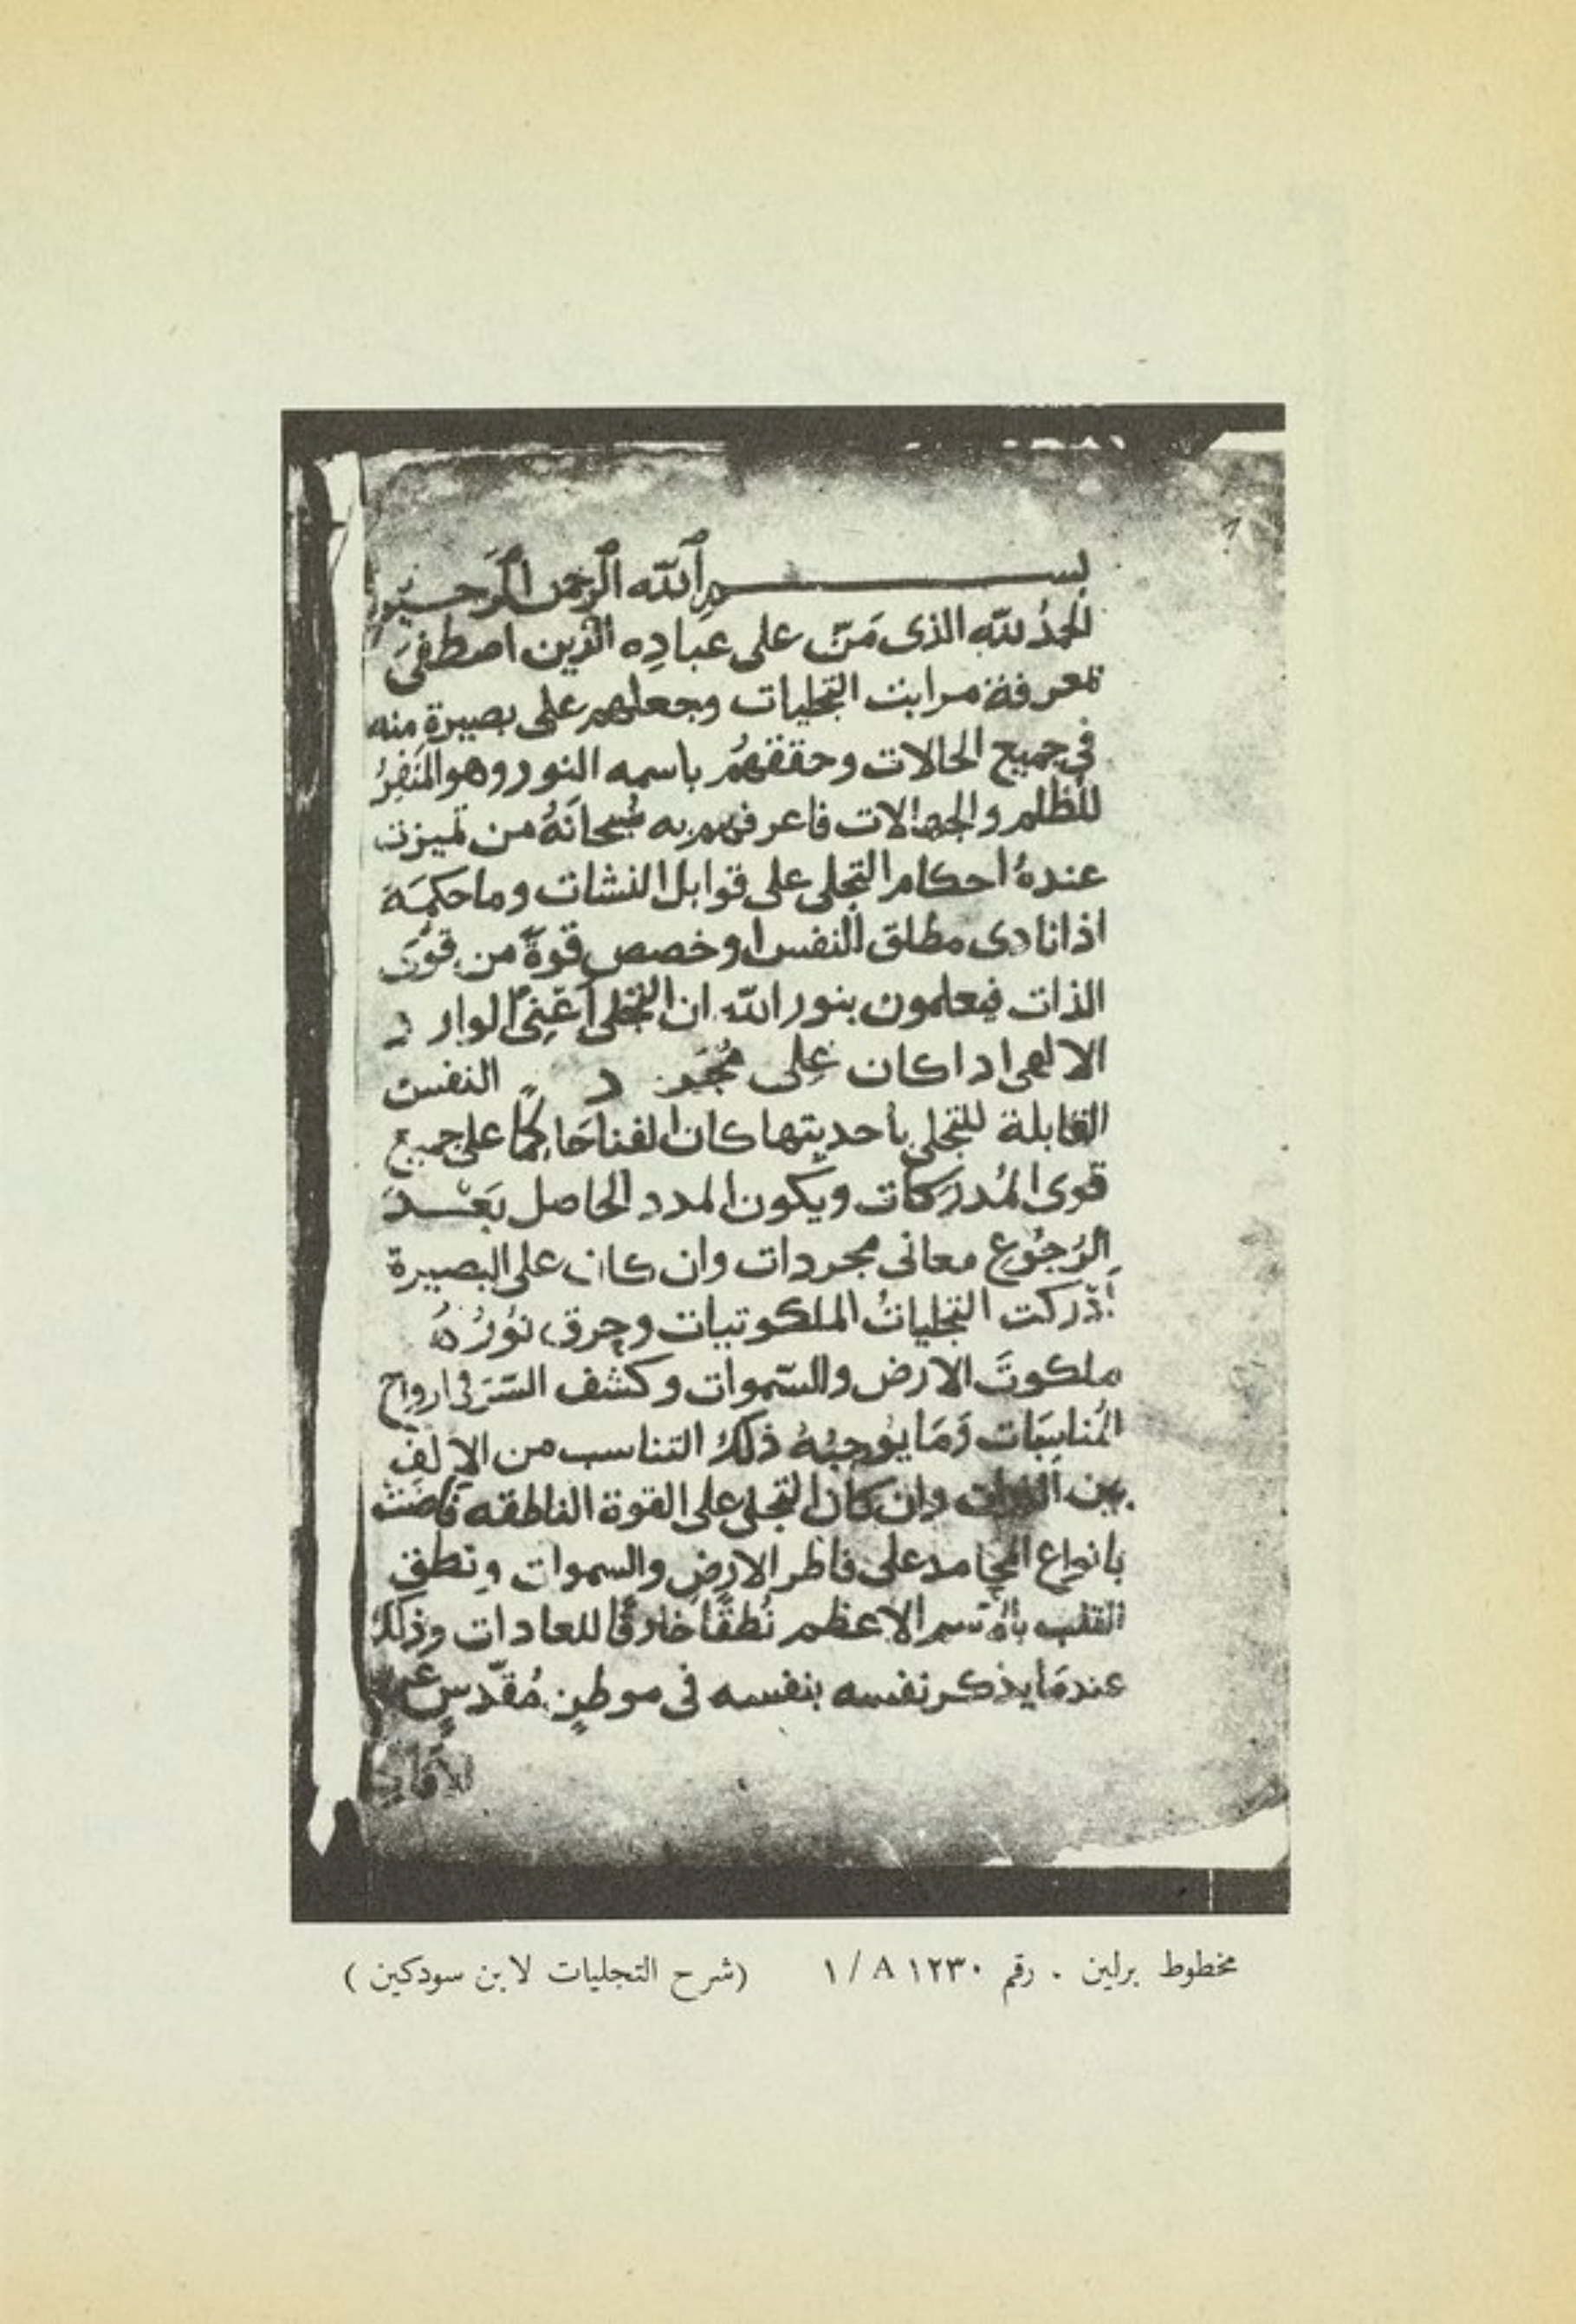 بسم الله الرحمن الرحيم
الحمد لله الذى مَنّ على عبادِه الذين اصطفىَ
لمعرفة مراتب التجليات وجعلهم على بصيرة منه
فى جميع الحالات وحققهمُ باسمه النور وهو المنَفِرُ
للظلم والجهالات فاعرفهم به سُبحانَهُ من تميزت
عندهُ احكام التجلى على قوابل النشات وما حكمَه
اذا نادى مطلق النفس او خصص قوةً من قوىَ
الذات فيعلمون بنور الله ان التجلى اَعْنِى الوارد
الالهى اذا كان على مُجَرد النفس
القابلة للتجلى باحديتها كان الفنا حَاكِمًا على جميع
قوى المُدرَكات ويكون المدد الحاصل بَعْدَ
الرُجُوع معانى مجردات وان كان على البصيرة
اَدْرَكت التجلياتُ الملكوتيات وخرق نوُرُهُ
ملكوتَ الارض والسّموات وكشف السّرَ فى ارواح
المُناسِبَات وَمَا يوُجبُهُ ذلك التناسب من الاِلفِ
بين الذوات وان كان التجلى على القوة الناطقه فاضَتْ
بانواع المحامد على فاطر الارضِ والسموات ونطق
القلب بالاسم الاعظم نُطقًا خارقًا للعادات وذلك
عندمَا يذكر نفسه بنفسه فى موطنٍ مُقدّسٍ عن
مخطوط برلين . رقم ١٢٣٠ A / ١ (شرح التجليات لابن سودكين )